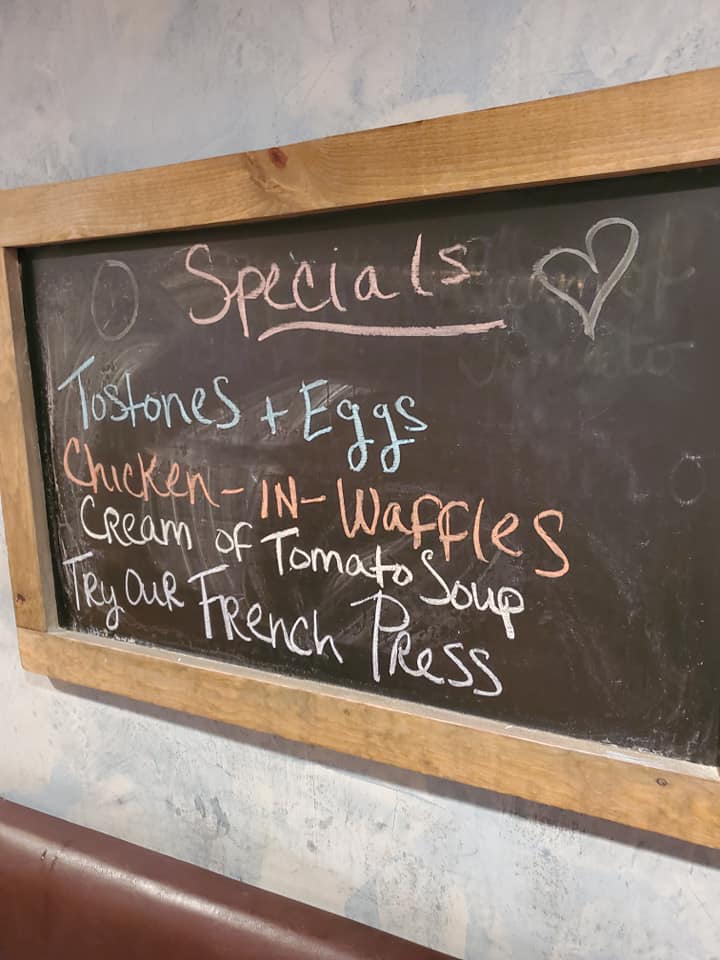 Specials
Tostones + Eggs
Chicken-IN-Waffles
Cream of Tomato Soup
Try our French Press